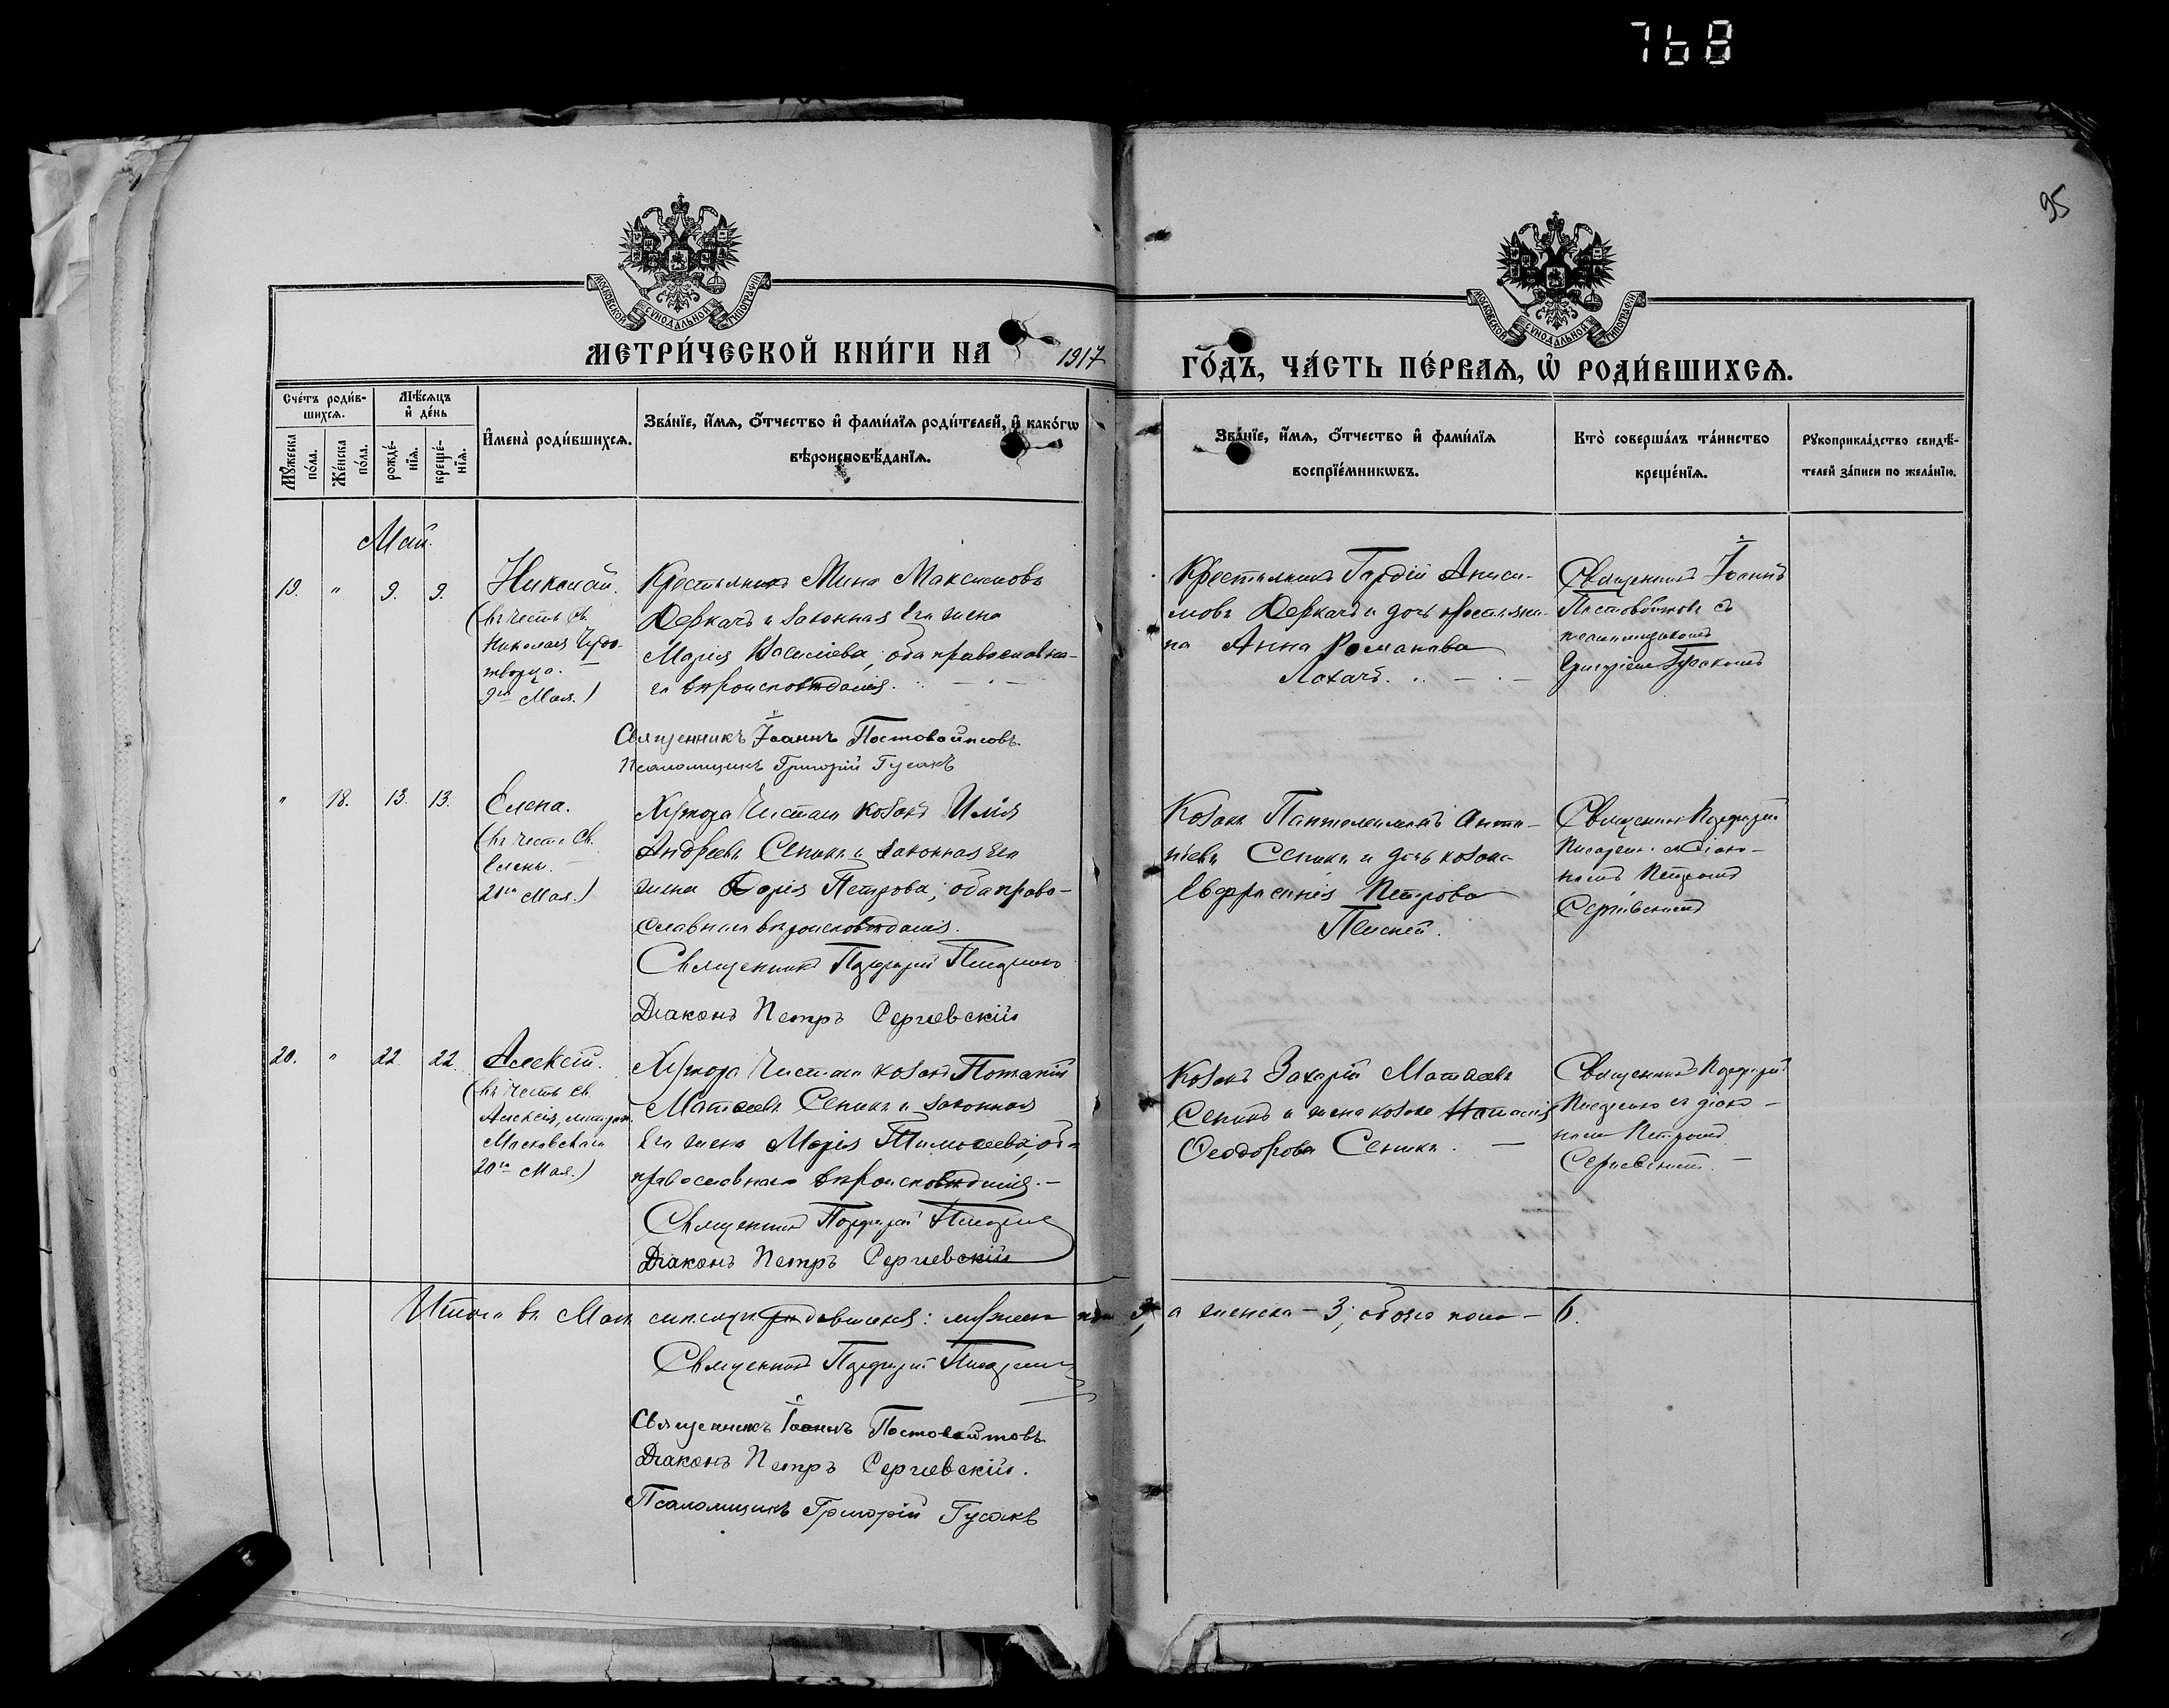 768
95
МОСКОВСКОЙ СѴНОДАЛЬНОЙ ТИПОГРАФІИ
МОСКОВСКОЙ СѴНОДАЛЬНОЙ ТИПОГРАФІИ
МЕТРИ́ЧЕСКОЙ КНИ́ГИ НА 1917 ГО́ДЪ, ЧА́СТЬ ПЕ́РВАЯ, Ѡ РОДИ́ВШИХСЯ.
Сче́тъ роди́в-
шихся.
Мѣ́сяцъ
и де́нь
Мꙋжеска
по́ла.
Же́нска
по́ла.
рожде́-
нїя.
креще́-
нїя.
Имена̀ роди́вшихся.
Зва́нїе, и́мя, о́тчество и фами́лїя роди́телей, и како́гѡ
вѣроисповѣ́данїя.
Зва́нїе, и́мя, о́тчество и фами́лїя
воспрїе́мникѡвъ.
Кто̀ соверша́лъ та́инство
креще́нїя.
Рꙋкоприкла́дство свидѣ́-
телей за́писи по жела́нїю.
Май.
19. " 9. 9.
Николай.
(въ честь Св.
Николая Чудо-
творца.
9го Мая.)
Крестьянинъ Мина Максимовъ
Деркачъ и законная его жена
Марія Василіева, оба православна-
го вѣроисповѣданія.
Священникъ Іоаннъ Постовойтовъ.
Псаломщикъ Григорій Гусакъ
Крестьянинъ Гордій Аниси-
мовъ Деркачъ и дочь крестьяни-
на Анна Романова
Лохачъ.
Священникъ Іоаннъ
Постовойтовъ съ
псаломщикомъ
Григоріемъ Гусакомъ
" 18. 13. 13.
Елена.
(въ честь Св.
Елены.
21го Мая.)
Хутора Чистаго козакъ Илія
Андреевъ Сеникъ и законная его
жена Дарія Петрова, оба право-
славнаго вѣроисповѣданія.
Священникъ Порфирій
Діаконъ Петръ Сергіевскій
Козакъ Пантелеимонъ
Сеникъ и дочь козака
Евфросинія Петрова
Священникъ Порфирій
съ діако-
номъ Петромъ
Сергіевскимъ
20. " 22. 22.
Алексій.
(въ честь Св.
Алексія, митроп.
Московскаго
20го Мая.)
Хутора Чистаго козакъ Потапій
Матѳеевъ Сеникъ и законная
его жена Марія Тимоѳеева, оба
православнаго вѣроисповѣданія.
Священникъ Порфирій
Діаконъ Петръ Сергіевскій
Козакъ Захарій Матѳеевъ
Сеникъ и жена козака
Ѳеодорова Сеникъ.
Священникъ Порфирій
съ діако-
номъ Петромъ
Сергіевскимъ.
Итого въ Маѣ мѣсяцѣ родившихся: мужска пола 3, а женска – 3; обоего пола – 6.
Священникъ Порфирій
Священникъ Іоаннъ Постовойтовъ.
Діаконъ Петръ Сергіевскій.
Псаломщикъ Григорій Гусакъ